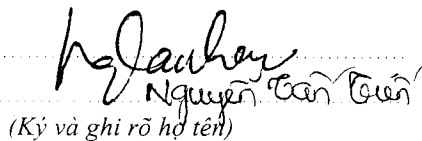 Nguyễn Tấn Tiến
(Ký và ghi rõ họ tên)